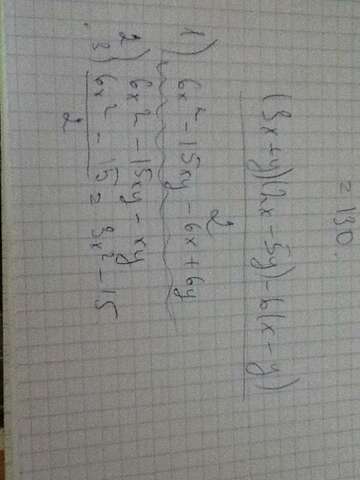 = 130.
(3x+y)(2x-5y)-6(x-y)
2
1) 6x² - 15xy - 6x + 6y
2) 6x² - 15xy - xy
3) 6x² - 15 = 3x² - 15
2